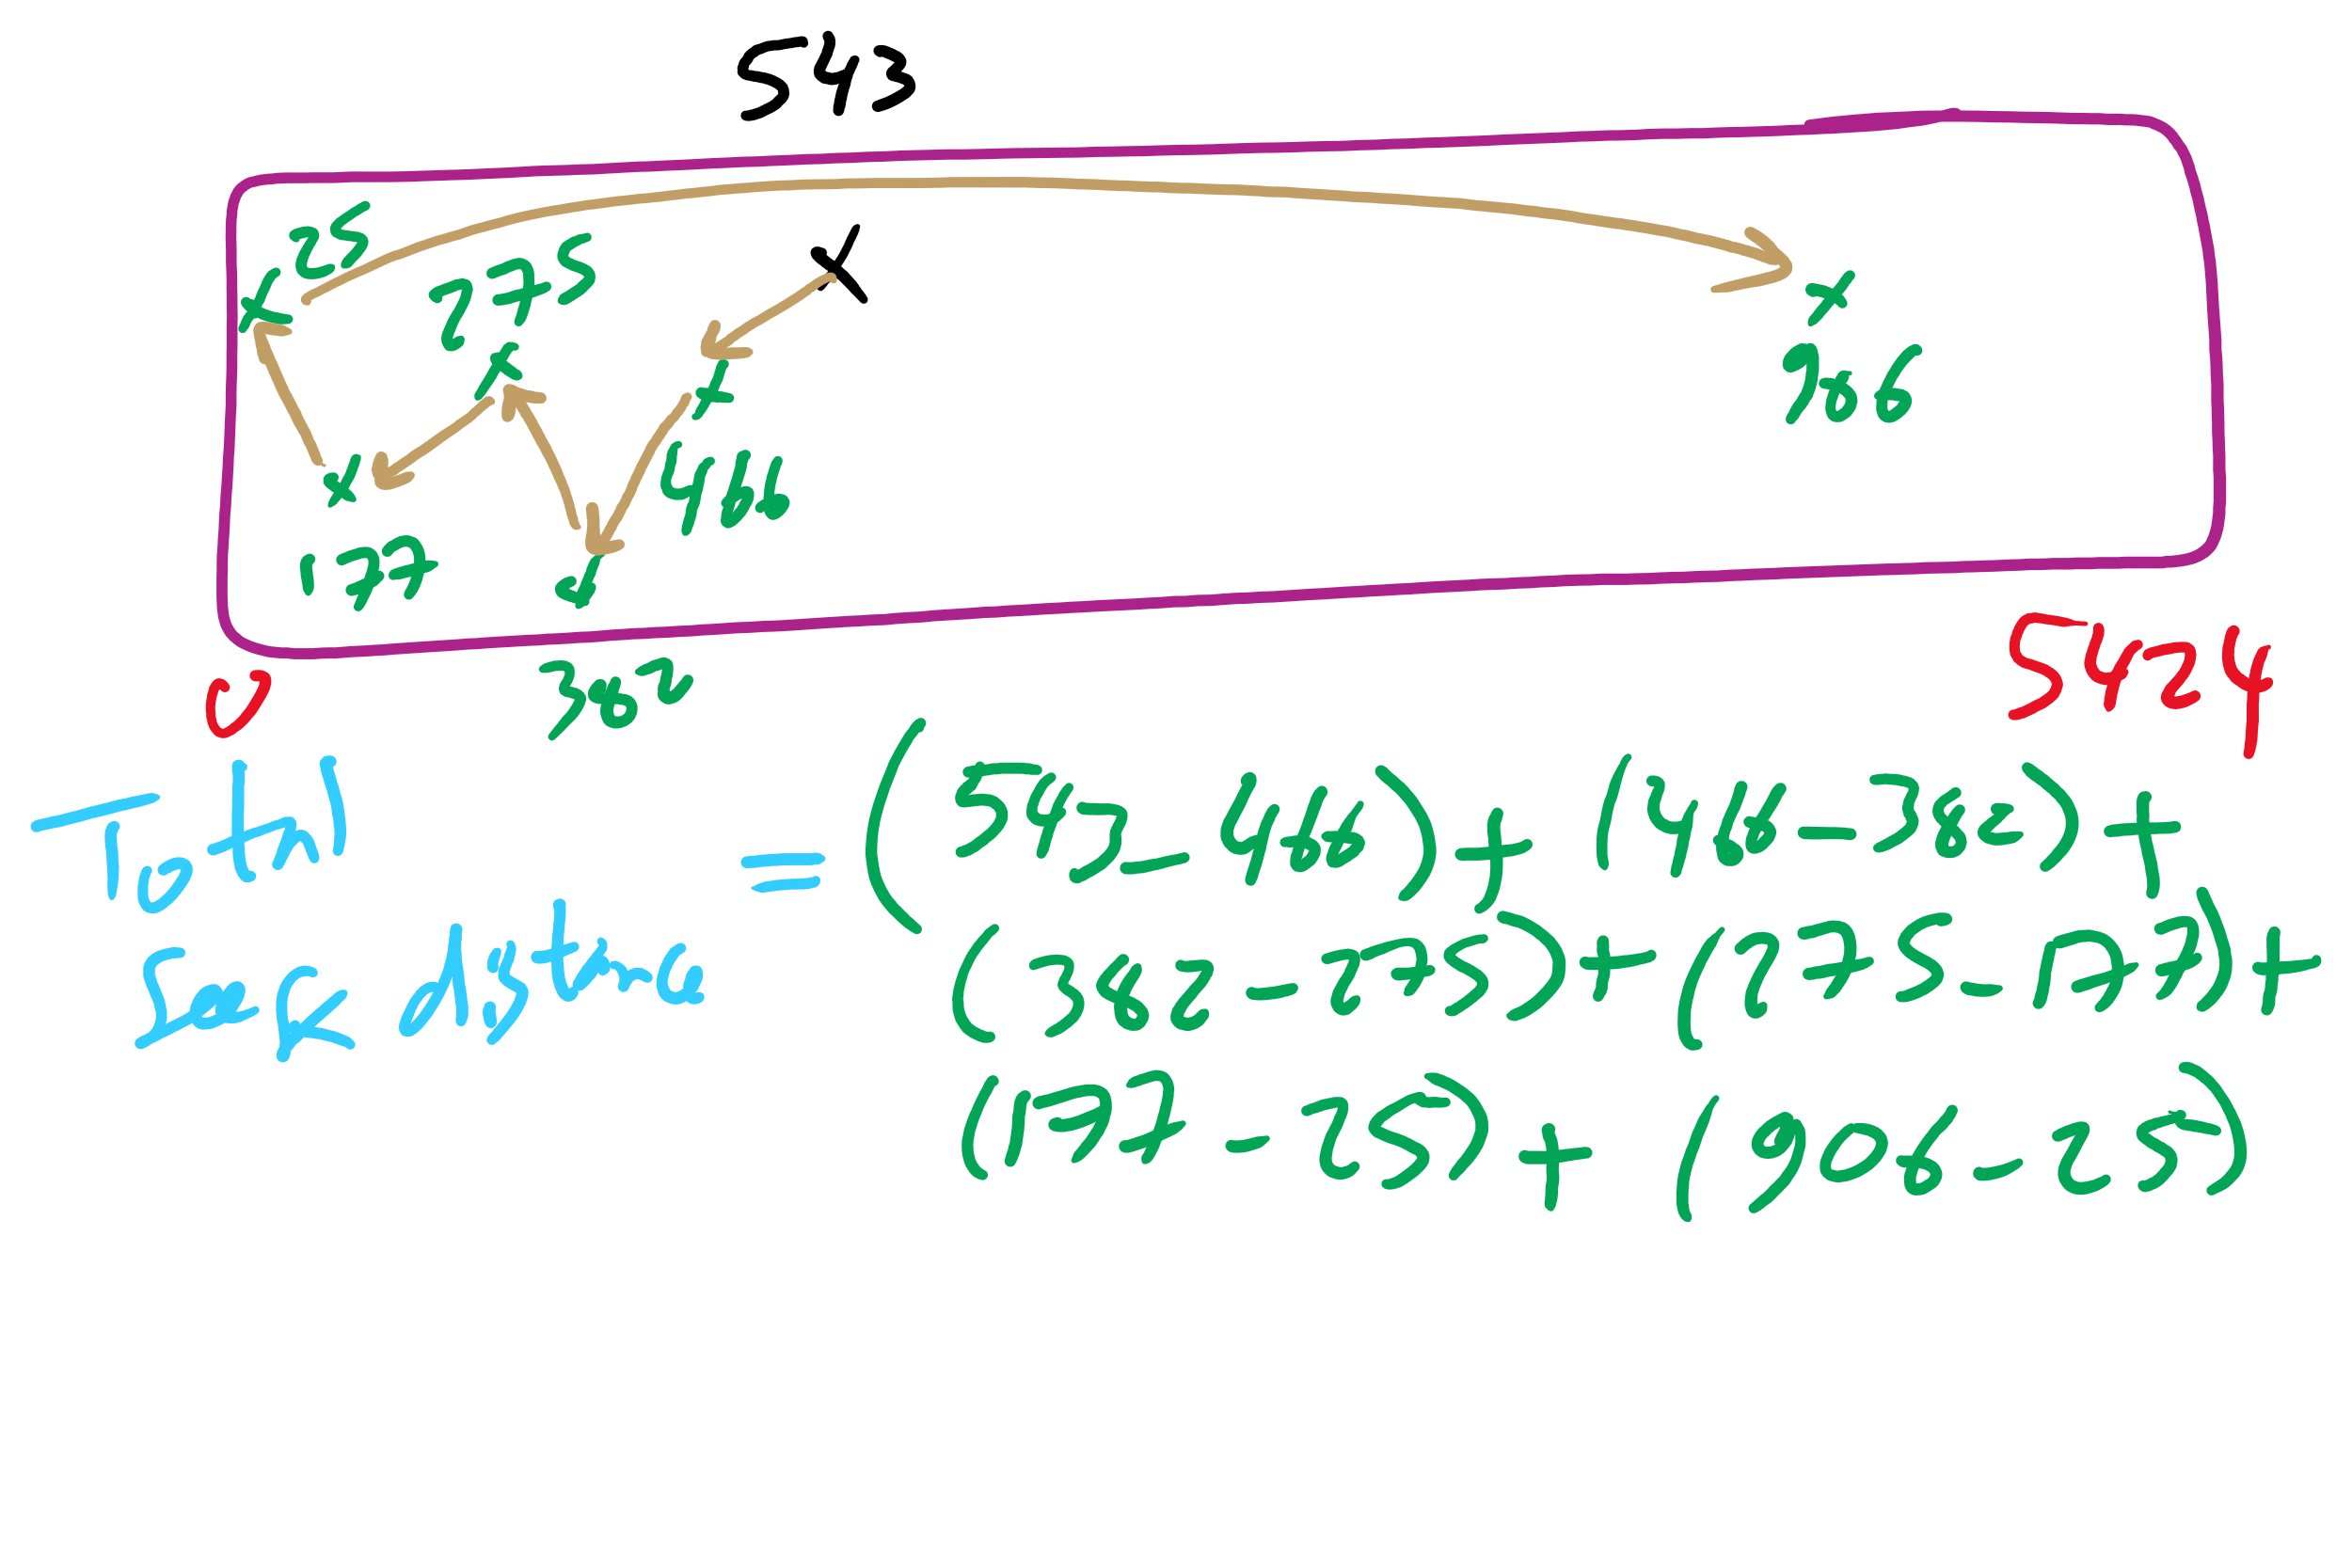 543
25
275
466
986
177
382
0
5424
Total seek distance = (543 - 466) + (466 - 382) +
(382 - 275) + (275 - 177) +
(177 - 25) + (906 - 25)